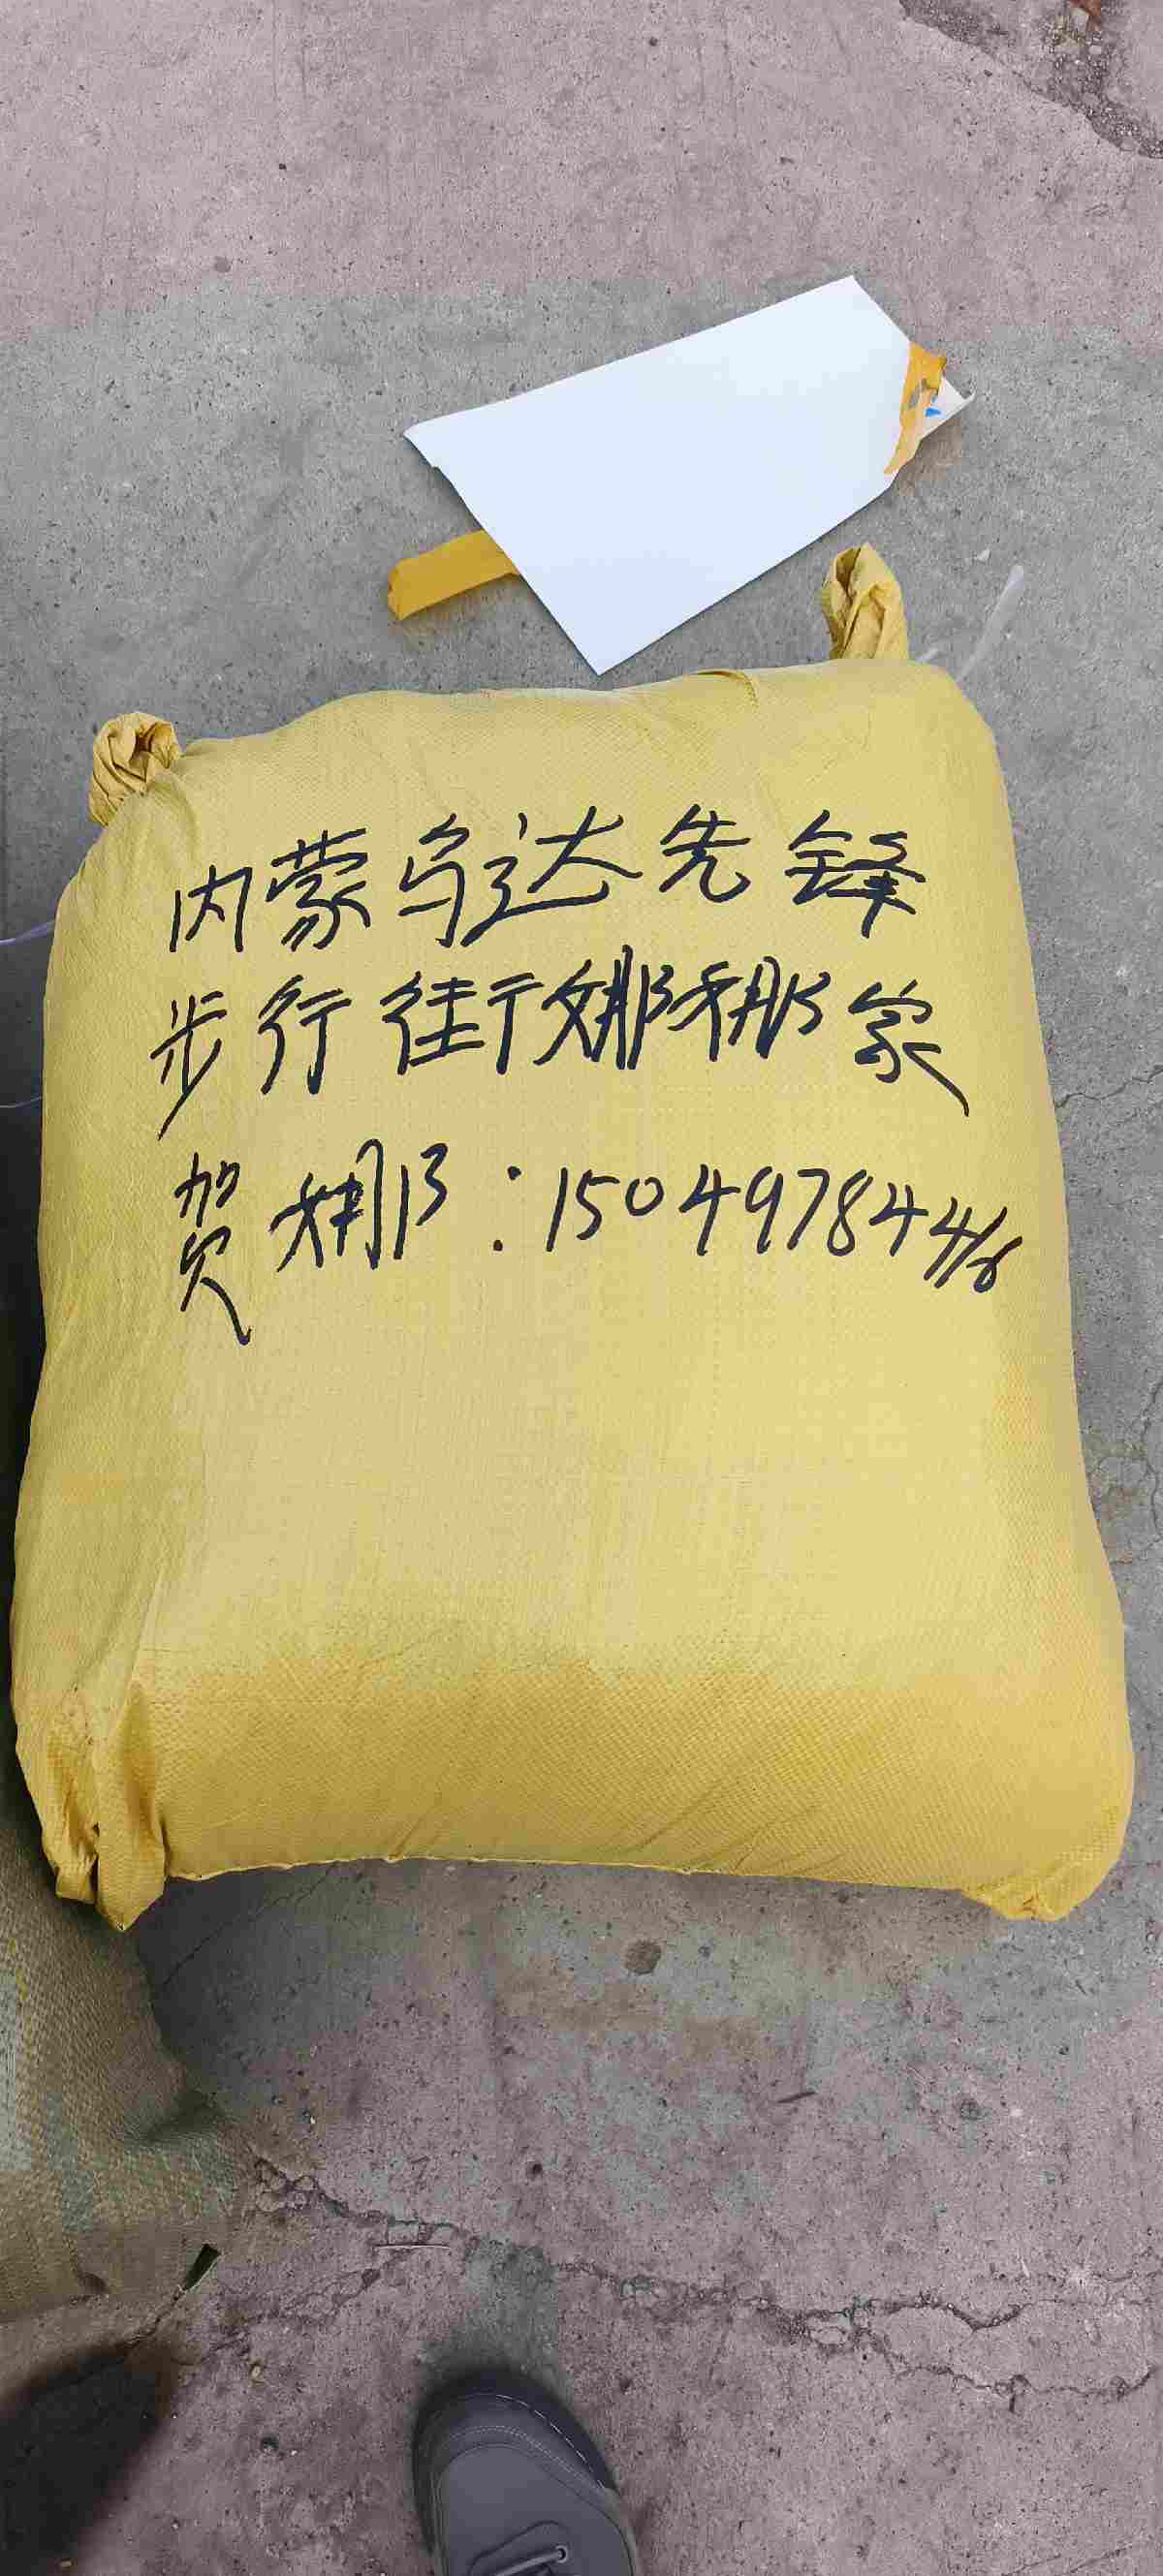 内蒙乌达先锋
步行街娜娜家
贺娜:15049784416